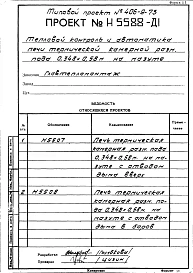 Типовой проект № 406-9-73
ПРОЕКТ № Н 5588-Д1
Тепловой контроль и автоматика
печи термической камерной разм.
пода 0,348×0,58м на мазуте
Главтепломонтаж
ВЕДОМОСТЬ
ОТНОСЯЩИХСЯ ПРОЕКТОВ
Обозначение
Наименование
1
Н5507
Печь термическая
камерная разм. пода
0,348×0,58м на ма-
зуте с отводом
дыма вверх
2
Н5508
Печь термическая
камерная разм. по-
да 0,348×0,58м. на
мазуте с отводом
дыма в боров
Разработал